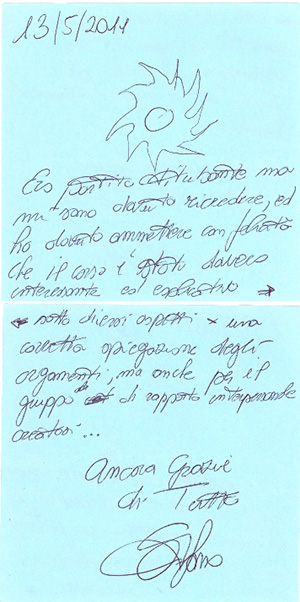 13/5/2011
Ero partito titubante ma
mi sono dovuto ricredere, ed
ho dovuto ammettere con felicità
che il corso è stato davvero
interessante ed esplicativo →
← sotto diversi aspetti x una
corretta spiegazione degli
argomenti, ma anche per il
gruppo di rapporto interpersonale
creatosi...
Ancora Grazie
di Tutto